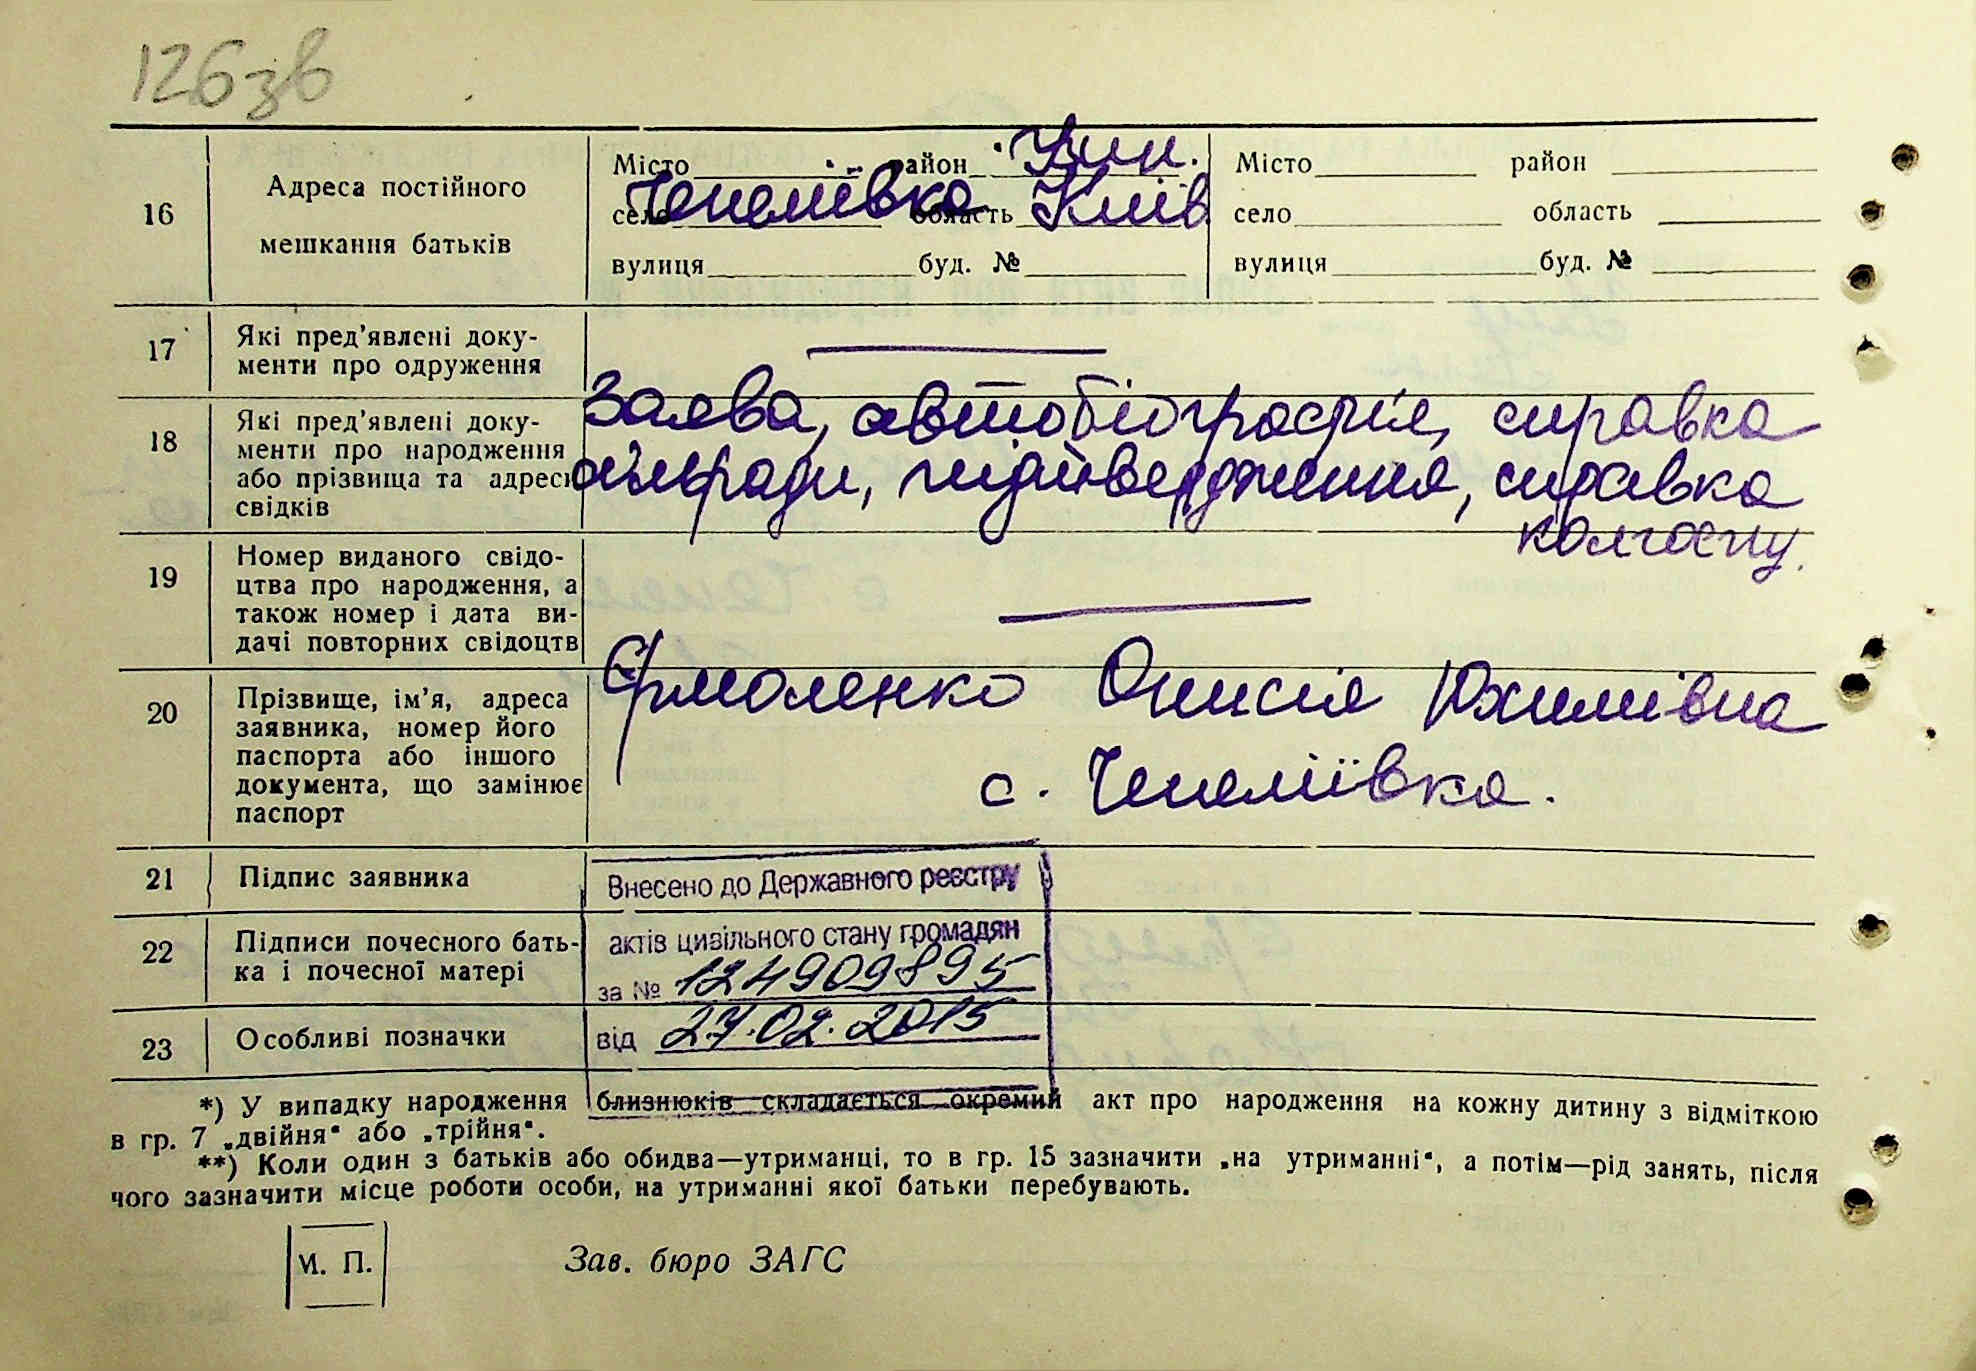 126зв
16 Адреса постійного мешкання батьків
Місто район
село Чепеліївка область Київ
вулиця буд. №
Місто район
село область
вулиця буд. №
17 Які пред'явлені доку-
менти про одруження
18 Які пред'явлені доку-
менти про народження
або прізвища та адреси
свідків
Заява, автобіографія, справка
сільради, підтвердження, справка
колгоспу.
19 Номер виданого свідо-
цтва про народження, а
також номер і дата ви-
дачі повторних свідоцтв
20 Прізвище, ім'я, адреса
заявника, номер його
паспорта або іншого
документа, що замінює
паспорт
Єрмоленко Онисія Юхимівна
с. Чепеліївка.
21 Підпис заявника
22 Підписи почесного бать-
ка і почесної матері
23 Особливі позначки
Внесено до Державного реєстру
актів цивільного стану громадян
за № 124909895
від 27.02.2015
*) У випадку народження близнюків складається окремий акт про народження на кожну дитину з відміткою
в гр. 7 „двійня“ або „трійня“.
**) Коли один з батьків або обидва—утриманці, то в гр. 15 зазначити „на утриманні“, а потім—рід занять, після
чого зазначити місце роботи особи, на утриманні якої батьки перебувають.
М. П.
Зав. бюро ЗАГС